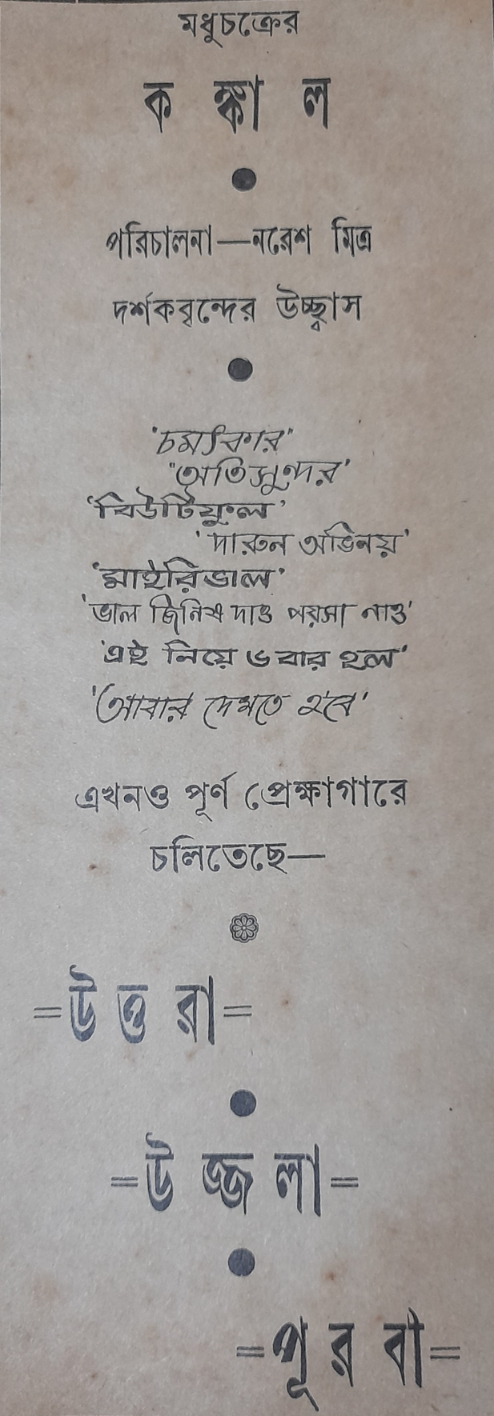 মধুচক্রের
ক ঙ্কা ল
পরিচালনা—নরেশ মিত্র
দর্শকবৃন্দের উচ্ছ্বাস
'চমৎকার'
'অতিসুন্দর'
'বিউটিফুল'
'দারুন অভিনয়'
'মাইরিভাল'
'ভাল জিনিষ দাও পয়সা নাও'
'এই নিয়ে ৬ বার হল'
'আবার দেখতে হবে'
এখনও পূর্ণ প্রেক্ষাগারে
চলিতেছে—
=উ ত্ত রা=
=উ জ্জ লা=
=পূ র বী=